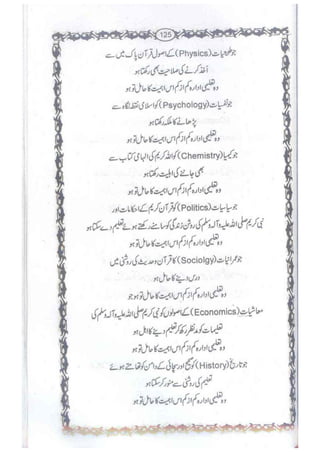 125
جو طبیعیات (Physics) کے اصول قرآن پاک میں سے
اَخذ کرنے کی صلاحیت بھی رکھتا ہو
وہ تعلیمی ادارہ کم از کم اس اہمیت کا حامل تو ہو
جو نفسیات (Psychology) کو اسلامی نقطۂ نگاہ سے
پڑھانے کا ملکہ رکھتا ہو
وہ تعلیمی ادارہ کم از کم اس اہمیت کا حامل تو ہو
جو کیمیا (Chemistry) کو اللہ کریم کی الہامی کتاب سے
بھی جاننے کی اہلیت رکھتا ہو
وہ تعلیمی ادارہ کم از کم اس اہمیت کا حامل تو ہو
جو سیاسیات (Politics) کو قرآن کریم کے احکامات اور
نبی کریم صلی اللہ علیہ وآلہ وسلم کی روشن زندگی کو سامنے رکھتے ہوئے تعلیم دے سکتا ہو
وہ تعلیمی ادارہ کم از کم اس اہمیت کا حامل تو ہو
جو عمرانیات (Sociolgy) کا قرآن و حدیث کی روشنی میں
درس دینے کا حامل ہو
وہ تعلیمی ادارہ کم از کم اس اہمیت کا حامل تو ہو جو
معاشیات (Economics) کے اصولوں کو نبی کریم صلی اللہ علیہ وآلہ وسلم کی
تعلیمات کو مدنظر رکھ کر تعلیم دینے کا اہل ہو
وہ تعلیمی ادارہ کم از کم اس اہمیت کا حامل تو ہو
جو تاریخ (History) کو صحیح اور سچائی کے دامن کو تھامتے ہوئے
تعلیم کی روشنی سے منور کر سکتا ہو
وہ تعلیمی ادارہ کم از کم اس اہمیت کا حامل تو ہو